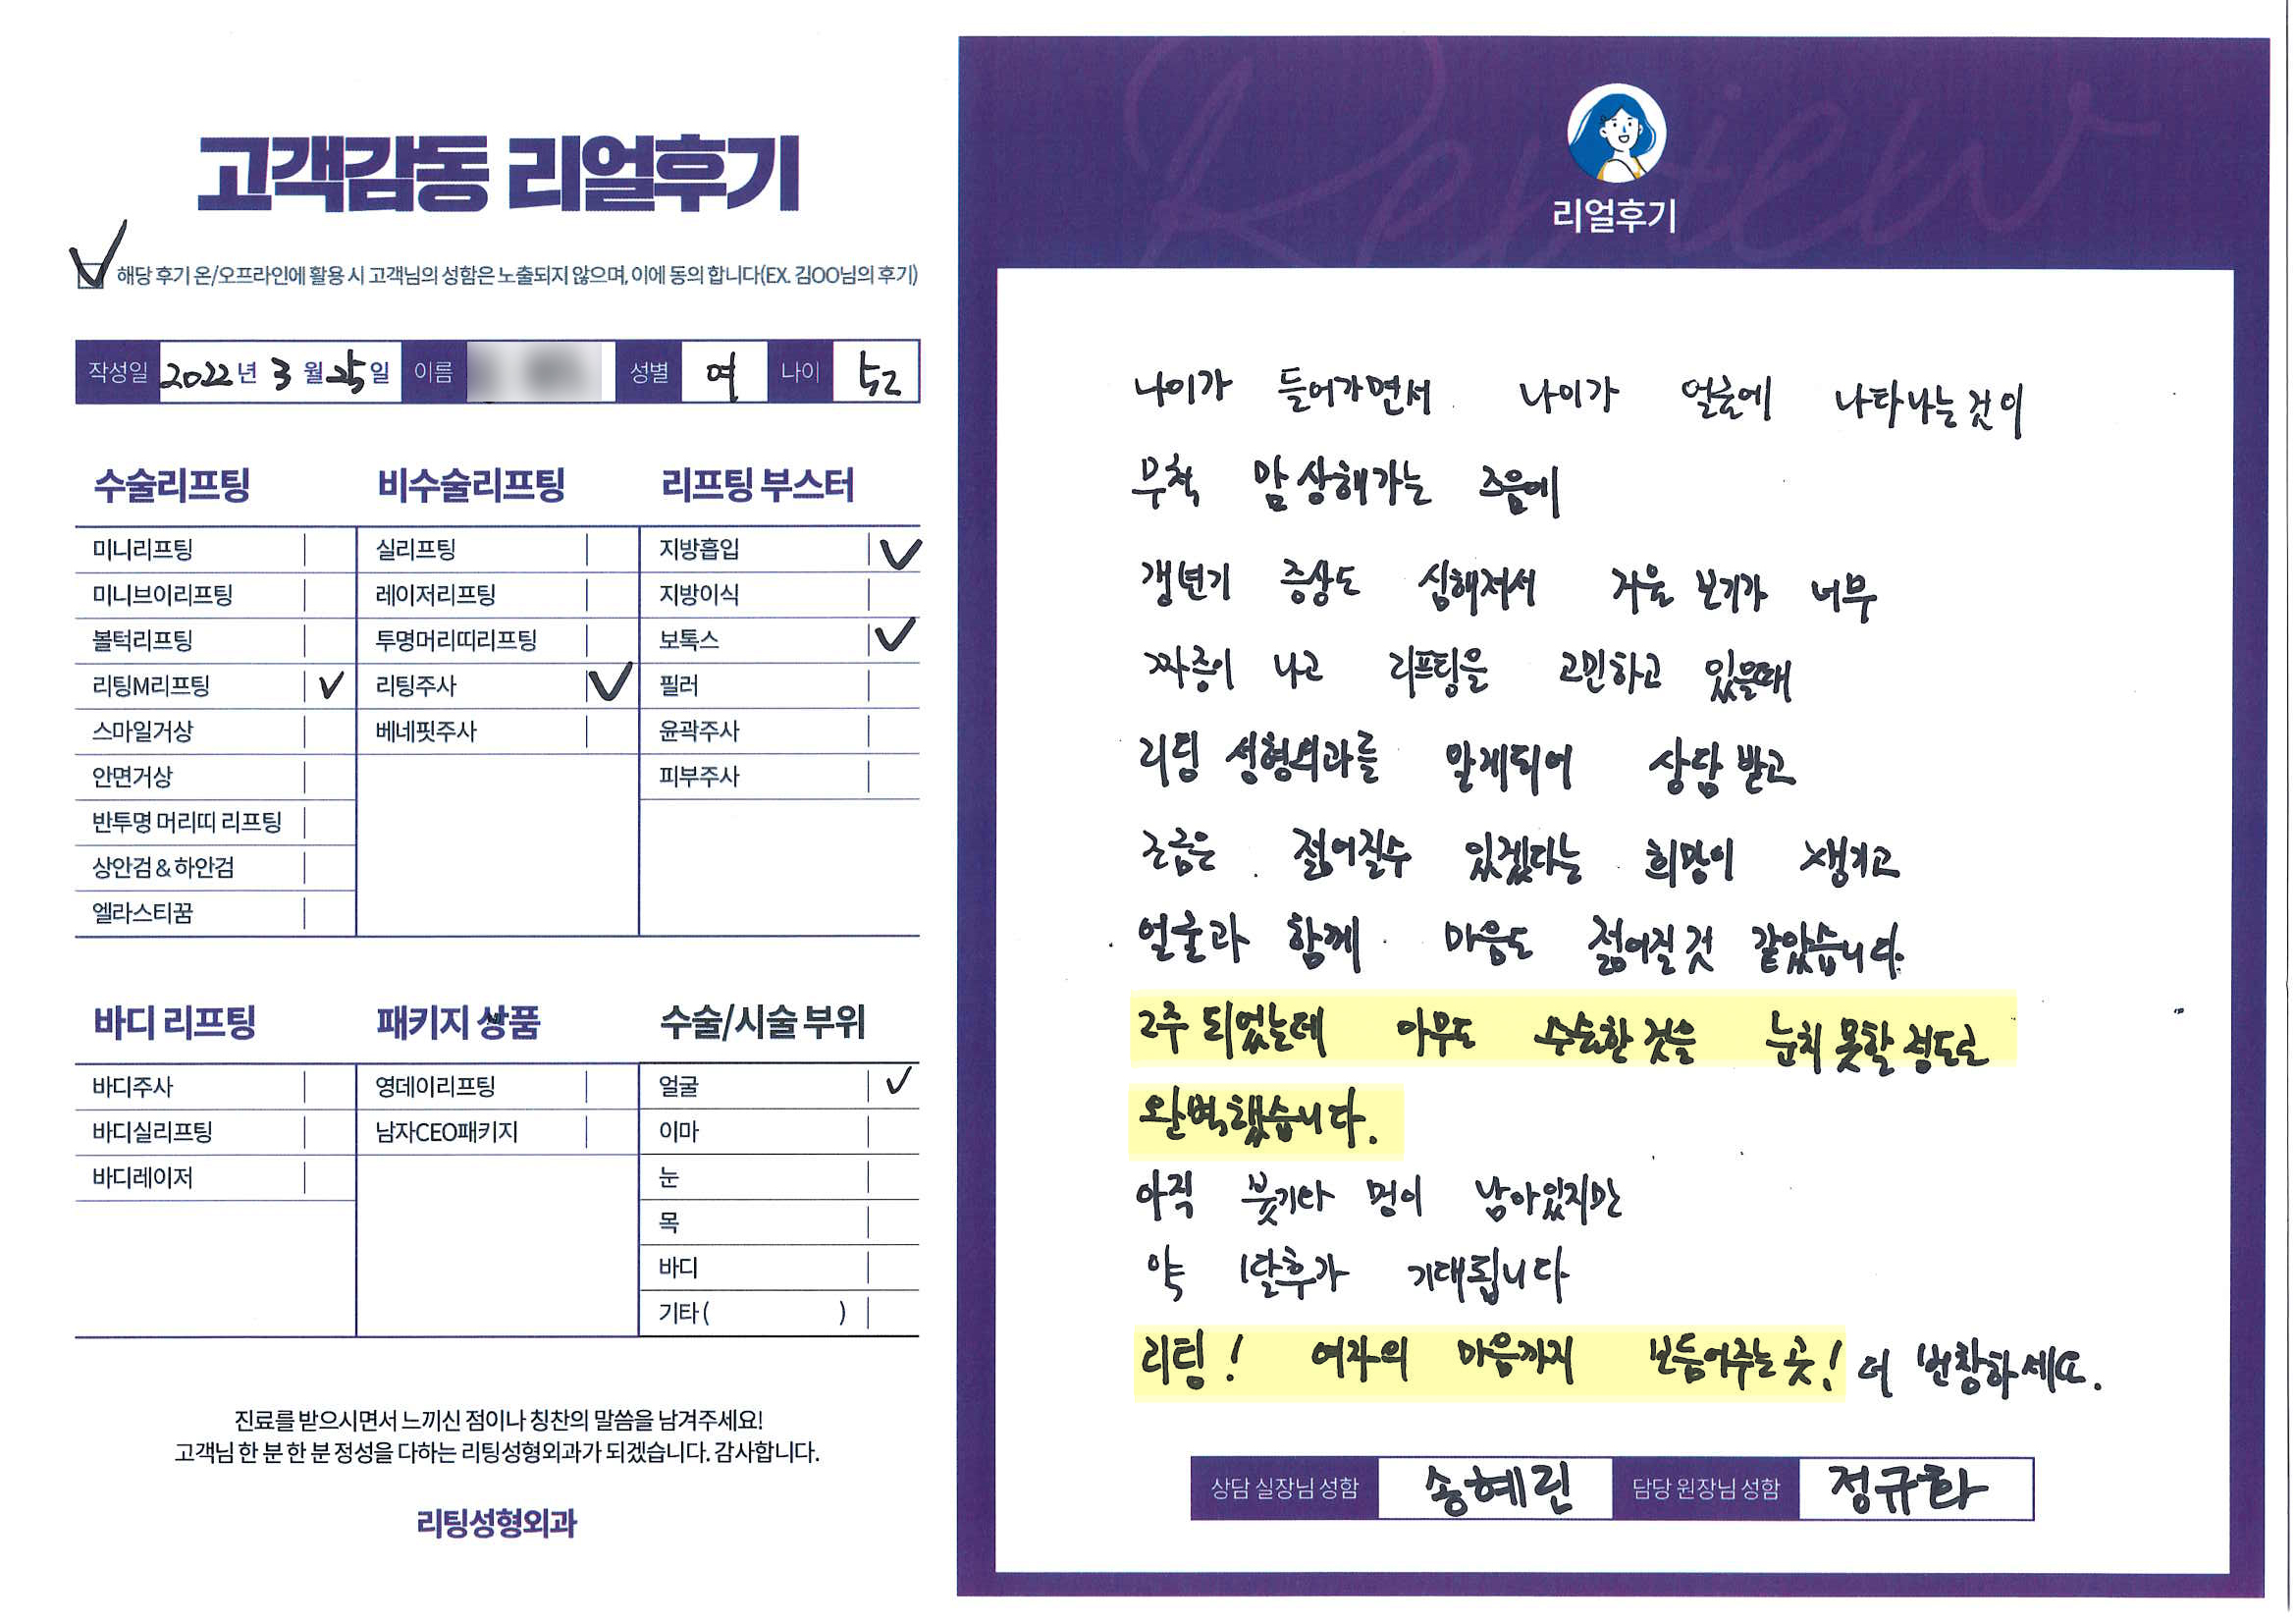 고객감동 리얼후기
해당 후기 온/오프라인에 활용 시 고객님의 성함은 노출되지 않으며, 이에 동의 합니다(EX. 김OO님의 후기)
작성일 2022년 3월 25일 이름 성별 여 나이 52
수술리프팅
미니리프팅
미니브이리프팅
볼턱리프팅
리팅M리프팅 ✓
스마일거상
안면거상
반투명 머리띠 리프팅
상안검 & 하안검
엘라스티꿈
비수술리프팅
실리프팅
레이저리프팅
투명머리띠리프팅
리팅주사 ✓
베네핏주사
리프팅 부스터
지방흡입 ✓
지방이식
보톡스 ✓
필러
윤곽주사
피부주사
바디 리프팅
바디주사
바디실리프팅
바디레이저
패키지 상품
영데이리프팅
남자CEO패키지
수술/시술 부위
얼굴 ✓
이마
눈
목
바디
기타 ( )
진료를 받으시면서 느끼신 점이나 칭찬의 말씀을 남겨주세요!
고객님 한 분 한 분 정성을 다하는 리팅성형외과가 되겠습니다. 감사합니다.
리팅성형외과
Review
리얼후기
나이가 들어가면서 나이가 얼굴에 나타나는것이
무척 맘 상해가는 즈음에
갱년기 증상도 심해져서 거울 보기가 너무
짜증이 나고 리프팅을 고민하고 있을때
리팅 성형외과를 알게되어 상담 받고
조금은 젊어질수 있겠다는 희망이 생기고
얼굴과 함께 마음도 젊어질것 같았습니다.
2주 되었는데 아무도 수술한 것을 눈치 못할 정도로
완벽했습니다.
아직 붓기와 멍이 남아있지만
약 1달후가 기대됩니다
리팅! 여자의 마음까지 보듬어주는 곳! 더 번창하세요.
상담 실장님 성함 송혜린 담당 원장님 성함 정규화